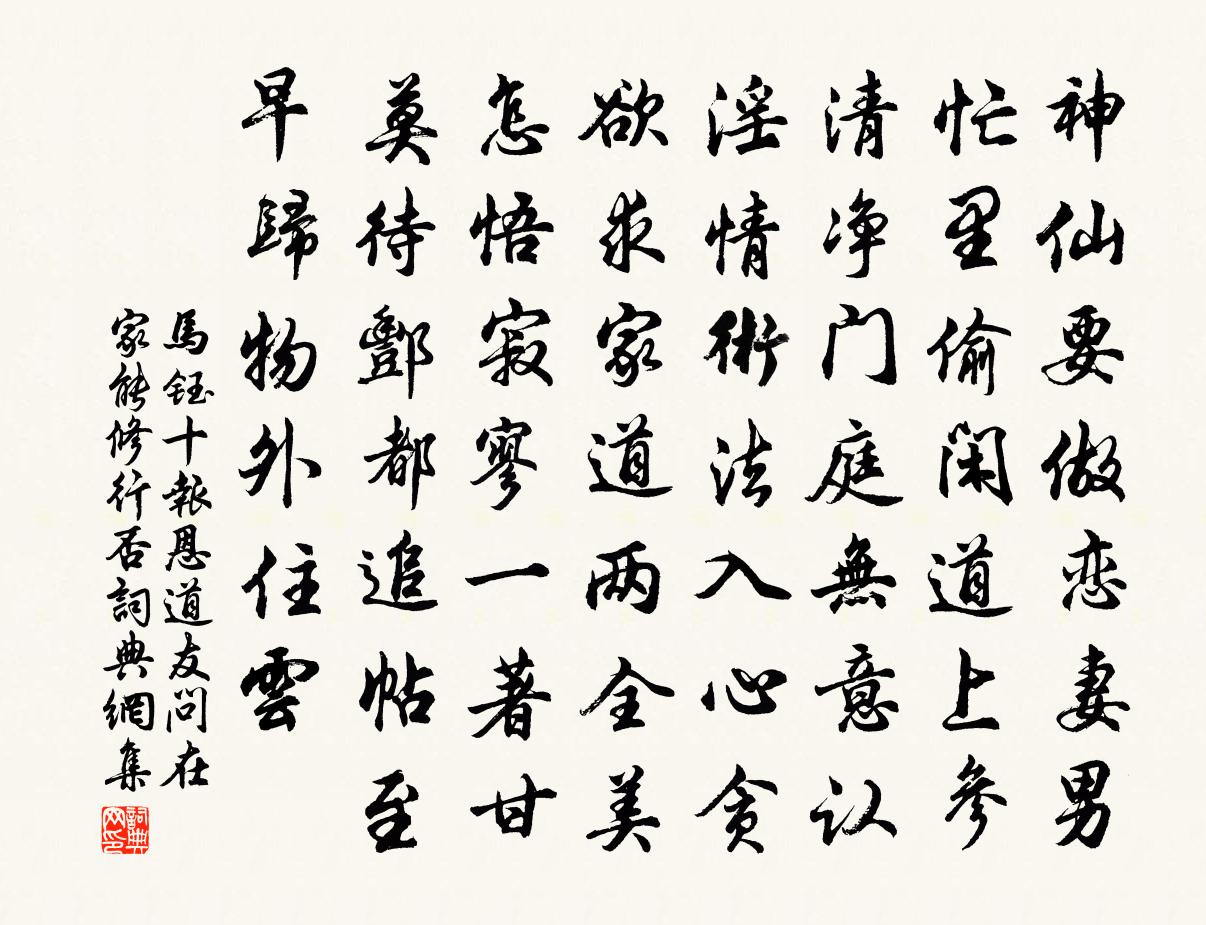 神仙要做恋妻男
忙里偷闲道上參
清净门庭無意认
淫情術法入心贪
欲求家道两全美
怎悟寂寥一著甘
莫待酆都追帖至
早歸物外住雲
馬鈺十報恩道友問在
家能修行否詞典網集
詞典
网印